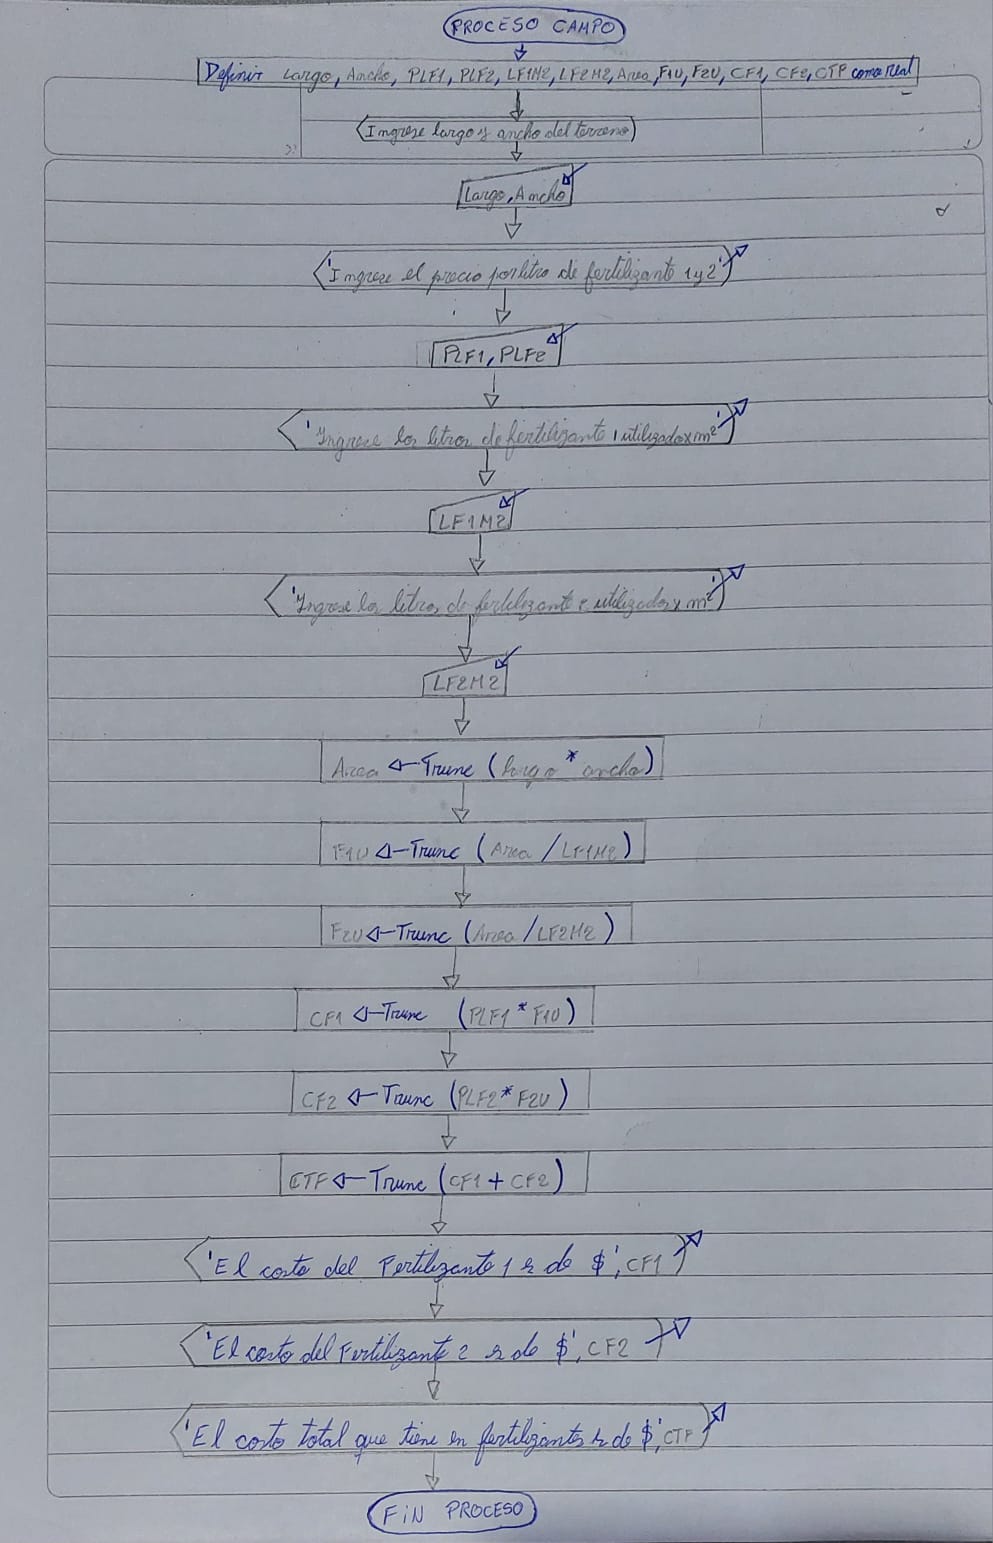 PROCESO CAMPO
Definir Largo, Ancho, PLF1, PLF2, LF1M2, LF2M2, Area, F1U, F2U, CF1, CF2, CTF como real
Ingrese largo y ancho del terreno
Largo, Ancho
'Ingrese el precio por litro de fertilizante 1 y 2'
PLF1, PLF2
'Ingrese los litros de fertilizante 1 utilizado x m²'
LF1M2
'Ingrese los litros de fertilizante 2 utilizados x m²'
LF2M2
Area ← Trunc (largo * ancho)
F1U ← Trunc (Area / LF1M2)
F2U ← Trunc (Area / LF2M2)
CF1 ← Trunc (PLF1 * F1U)
CF2 ← Trunc (PLF2 * F2U)
CTF ← Trunc (CF1 + CF2)
'El costo del Fertilizante 1 es de $', CF1
'El costo del Fertilizante 2 es de $', CF2
'El costo total que tiene en fertilizantes es de $', CTF
FIN PROCESO